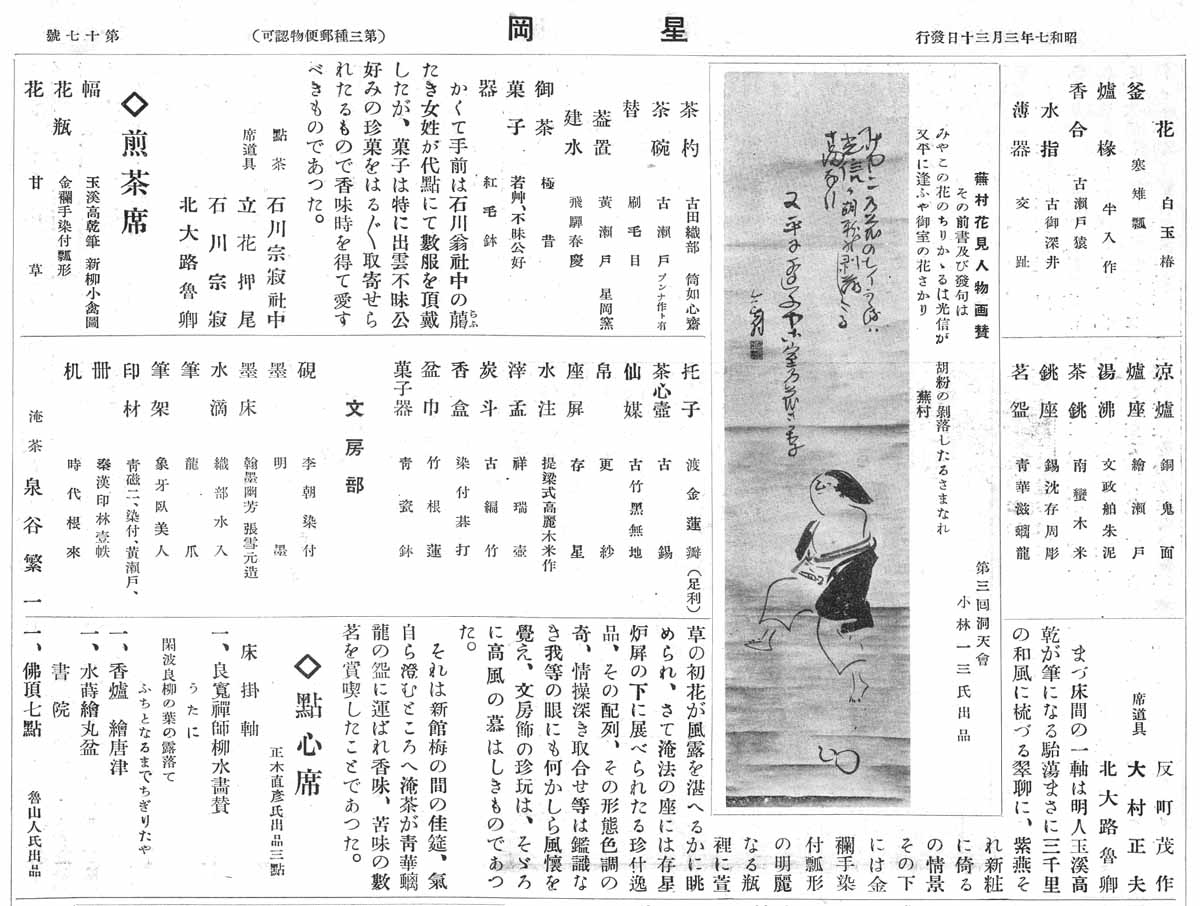 昭和七年三月三十日發行
星岡
(第三種郵便物認可)
第十七號
花 白玉椿
釜 寒雉瓢
爐椽 牛入作
香合 古瀬戸猿
水指 古御深井
薄器 交趾
蕪村花見人物画賛
その前書及び發句は
みやこの花のちりかゝるは光信が
胡粉の剥落したるさまなれ
又平に逢ふや御室の花さかり
蕪村
第三回洞天會
小林一三氏出品
茶杓 古田織部 筒如心齋
茶碗 古瀬戸ブンナ作ト有
替 刷毛目
蓋置 黃瀬戸 星岡窯
建水 飛驒春慶
御茶 極昔
菓子 若艸、不昧公好
器 紅毛鉢
かくて手前は石川翁社中の﨟
らふ
たき女姓が代點にて數服を頂戴
したが、菓子は特に出雲不昧公
好みの珍菓をはる〴〵取寄せら
れたるもので香味時を得て愛す
べきものであつた。
點茶 石川宗寂社中
席道具 立花押尾
石川宗寂
北大路魯卿
◇煎茶席
幅 玉溪高乾筆 新柳小禽圖
花瓶 金襴手染付瓢形
花 甘草
凉爐 銅鬼面
爐座 繪瀬戸
湯沸 文政舶朱泥
茶銚 南蠻木米
銚座 錫沈存周彫
茗盌 靑華滋螭龍
托子 渡金蓮瓣(足利)
茶心壷 古錫
仙媒 古竹黑無地
帛 更紗
座屏 存星
水注 提梁式高麗木米作
滓盂 祥瑞壺
炭斗 古編竹
香盒 染付碁打
盆巾 竹根蓮
菓子器 靑瓷鉢
文房部
硯 李朝染付
墨 明墨
墨床 翰墨幽芳 張雪元造
水滴 織部水入
筆 龍爪
筆架 象牙臥美人
印材 靑磁二、染付、黃瀬戸、
冊 秦漢印林壹帙
机 時代根來
淹茶 泉谷繁一
席道具 反町茂作
大村正夫
北大路魯卿
まづ床間の一軸は明人玉溪高
乾が筆になる駘蕩まさに三千里
の和風に梳づる翠聊に、紫燕そ
れ新粧
に倚る
の情景
その下
には金
襴手染
付瓢形
の明麗
なる瓶
裡に萱
草の初花が風露を湛へるかに眺
められ、さて淹法の座には存星
炉屏の下に展べられたる珍什逸
品、その配列、その形態色調の
奇、情操深き取合せ等は鑑識な
き我等の眼にも何かしら風懷を
覺え、文房飾の珍玩は、そゞろ
に高風の慕はしきものであつ
た。
それは新館梅の間の佳筵、氣
自ら澄むところへ淹茶が靑華螭
龍の盌に運ばれ香味、苦味の數
茗を賞喫したことであつた。
◇點心席
正木直彦氏出品三點
床掛軸
一、良寬禪師柳水畵賛
うたに
閑波良柳の葉の露落て
ふちとなるまでちぎりたや
一、香爐 繪唐津
一、水蒔繪丸盆
書院
一、佛頂七點 魯山人氏出品